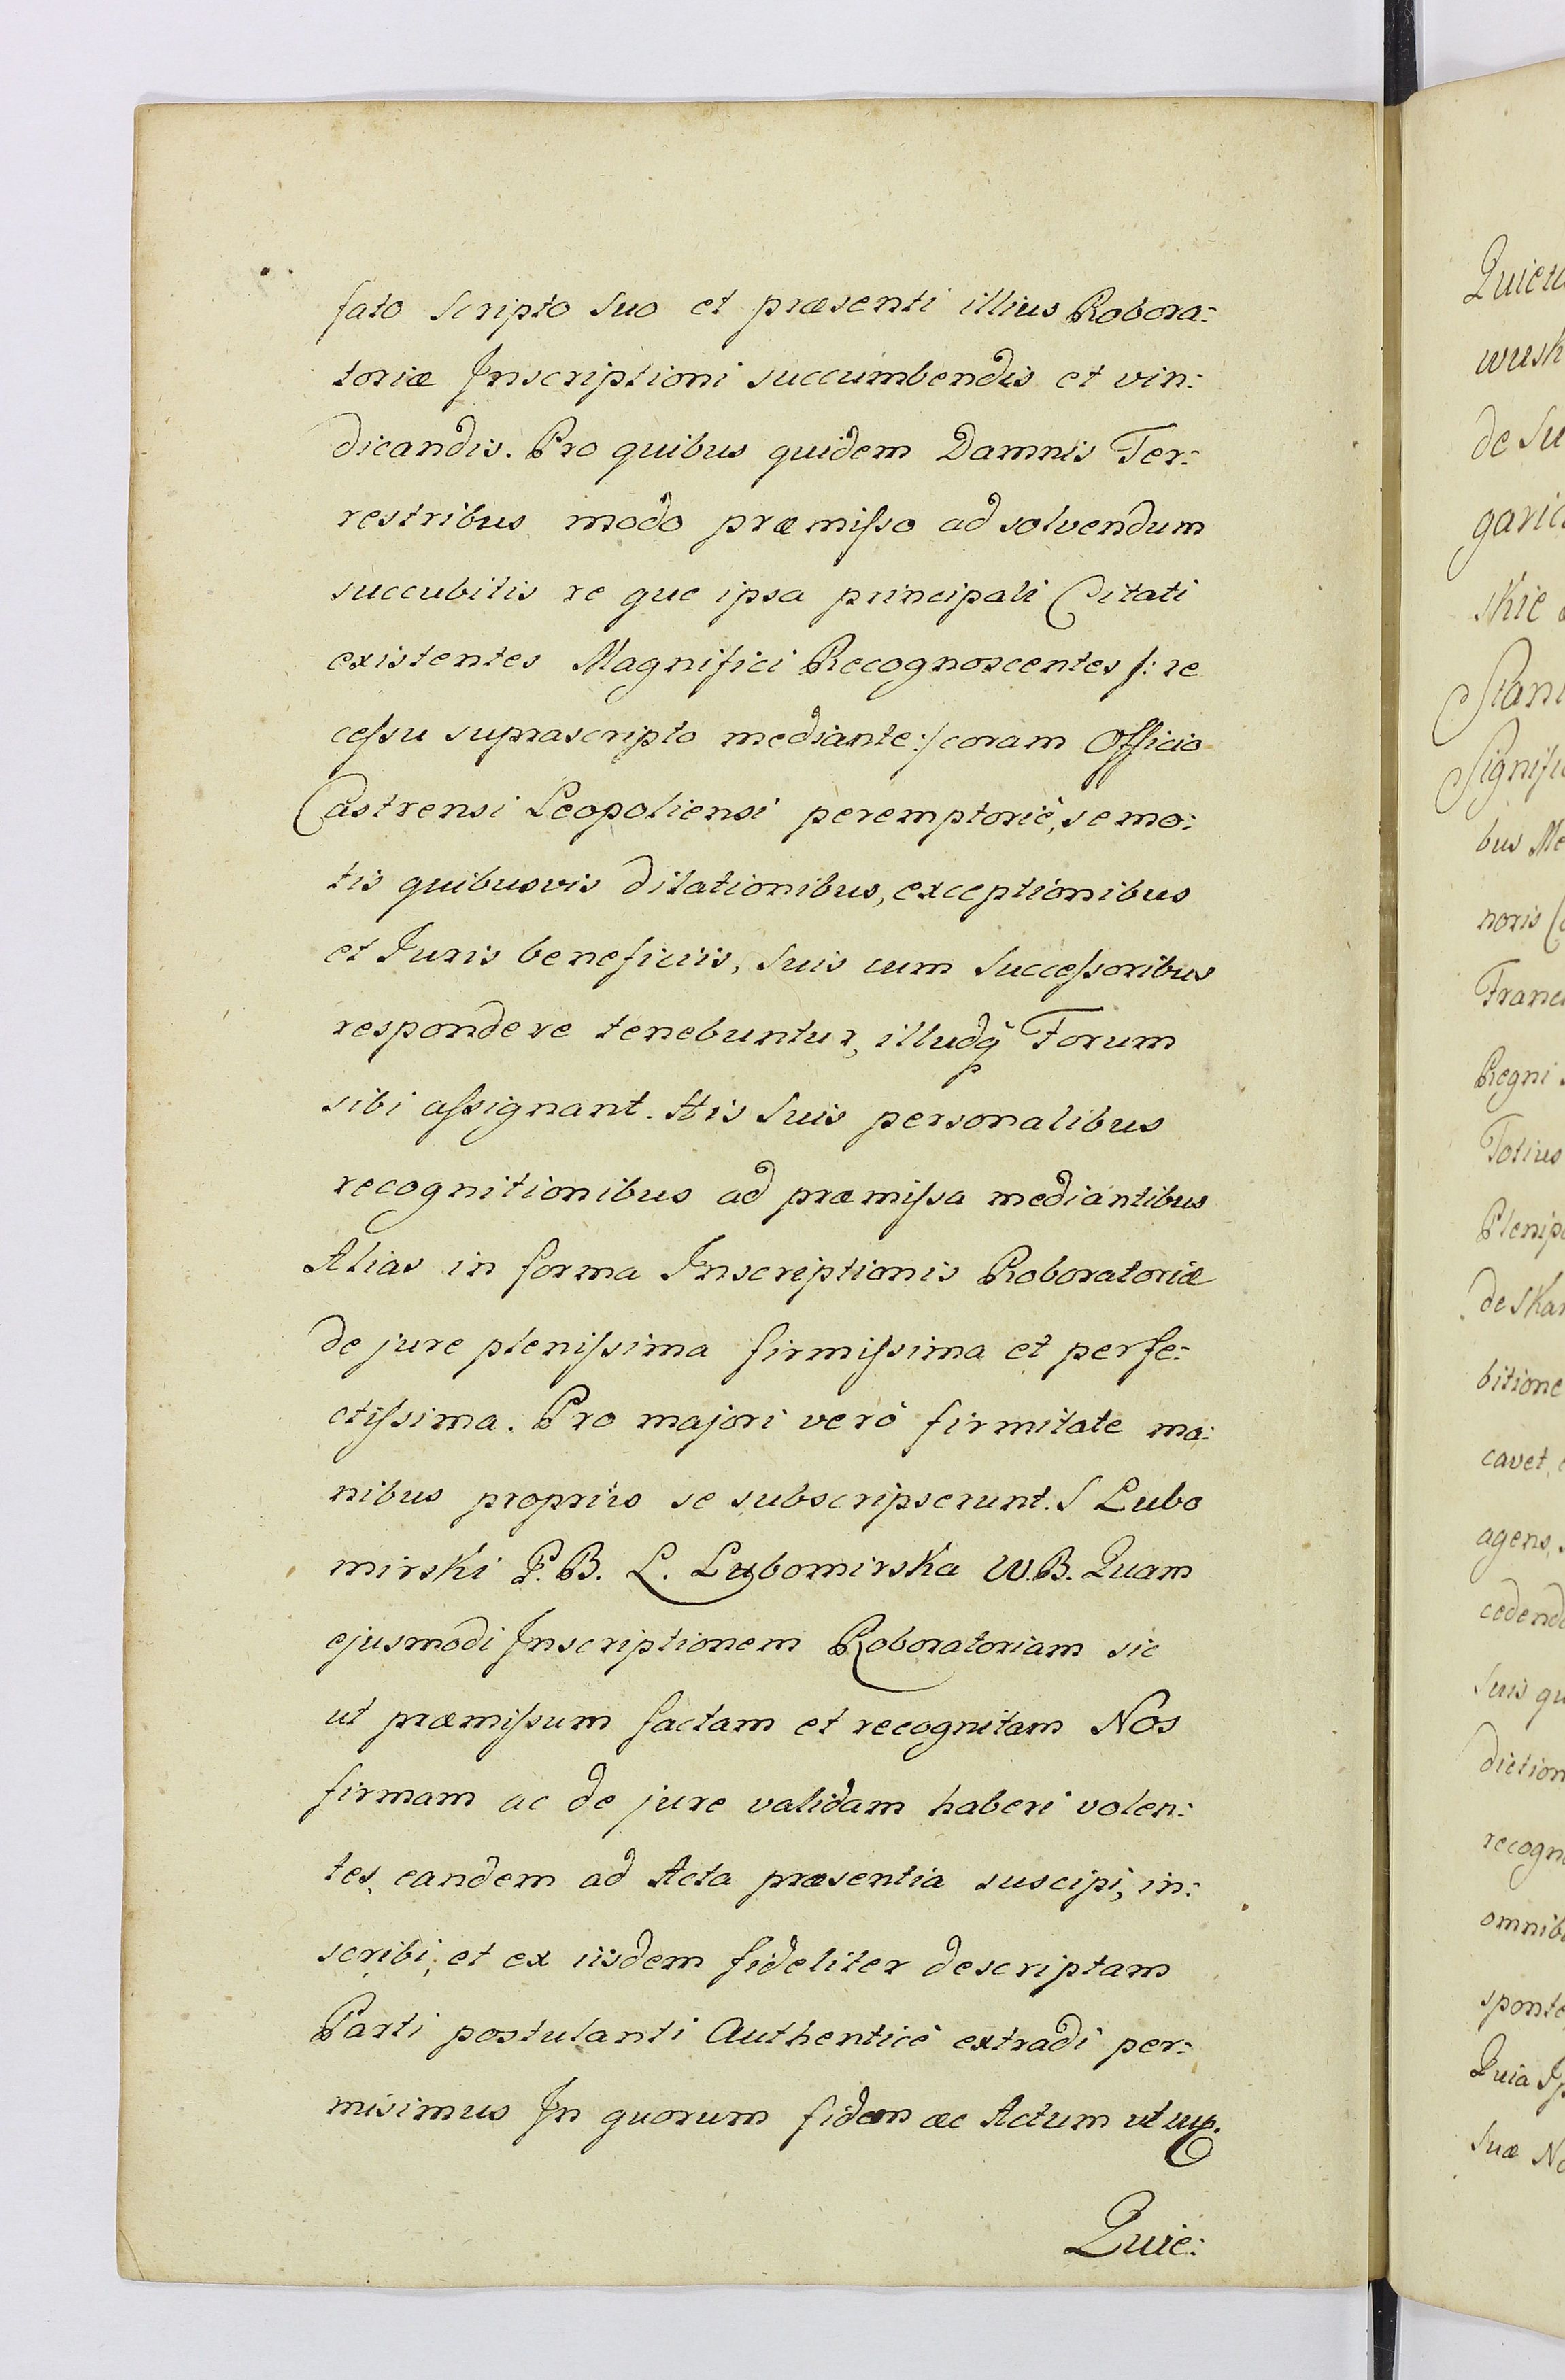 fato scripto suo et præsenti illius Robora:
toriæ Inscriptioni succumbendis et vin:
dicandis. Pro quibus quidem Damnis Ter:
restribus modo præmiſso ad solvendum
succubitis re que ipsa principali Citati
existentes Magnifici Recognoscentes /: re
ceſsu suprascripto mediante :/ coram Officio
Castrensi Leopoliensi peremptoriè, semo:
tis quibusvis dilationibus, exceptionibus
et Juris beneficiis, suis cum Succeſsoribus
respondere tenebuntur, illudq Forum
sibi aſsignant. His suis personalibus
recognitionibus ad præmiſsa mediantibus
Alias in forma Inscriptionis Roboratoriæ
de jure pleniſsima firmiſsima et perfe:
ctiſsima. Pro majori verò firmitate ma:
nibus propriis se subscripserunt. S Lubo
mirski P. B. L. Lubomirska W. B. Quam
ejusmodi Inscriptionem Roboratoriam sic
ut præmiſsum factam et recognitam Nos
firmam ac de jure validam haberi volen:
tes, eandem ad Acta præsentia suscipi, in:
scribi, et ex iisdem fideliter descriptam
Parti postulanti Authenticè extradi per:
misimus In quorum fidem ac Actum ut sup.
Quie:
Quieta
wusk
de Su
garic
skie
Stani
Signifi
bus Me
noris
Franc
Regni
Totius
Plenip
de Skar
bitione
cavet,
agens,
cedend
Suis qu
diction
recogn
omnib
sponte
Quia Ip
Suæ No